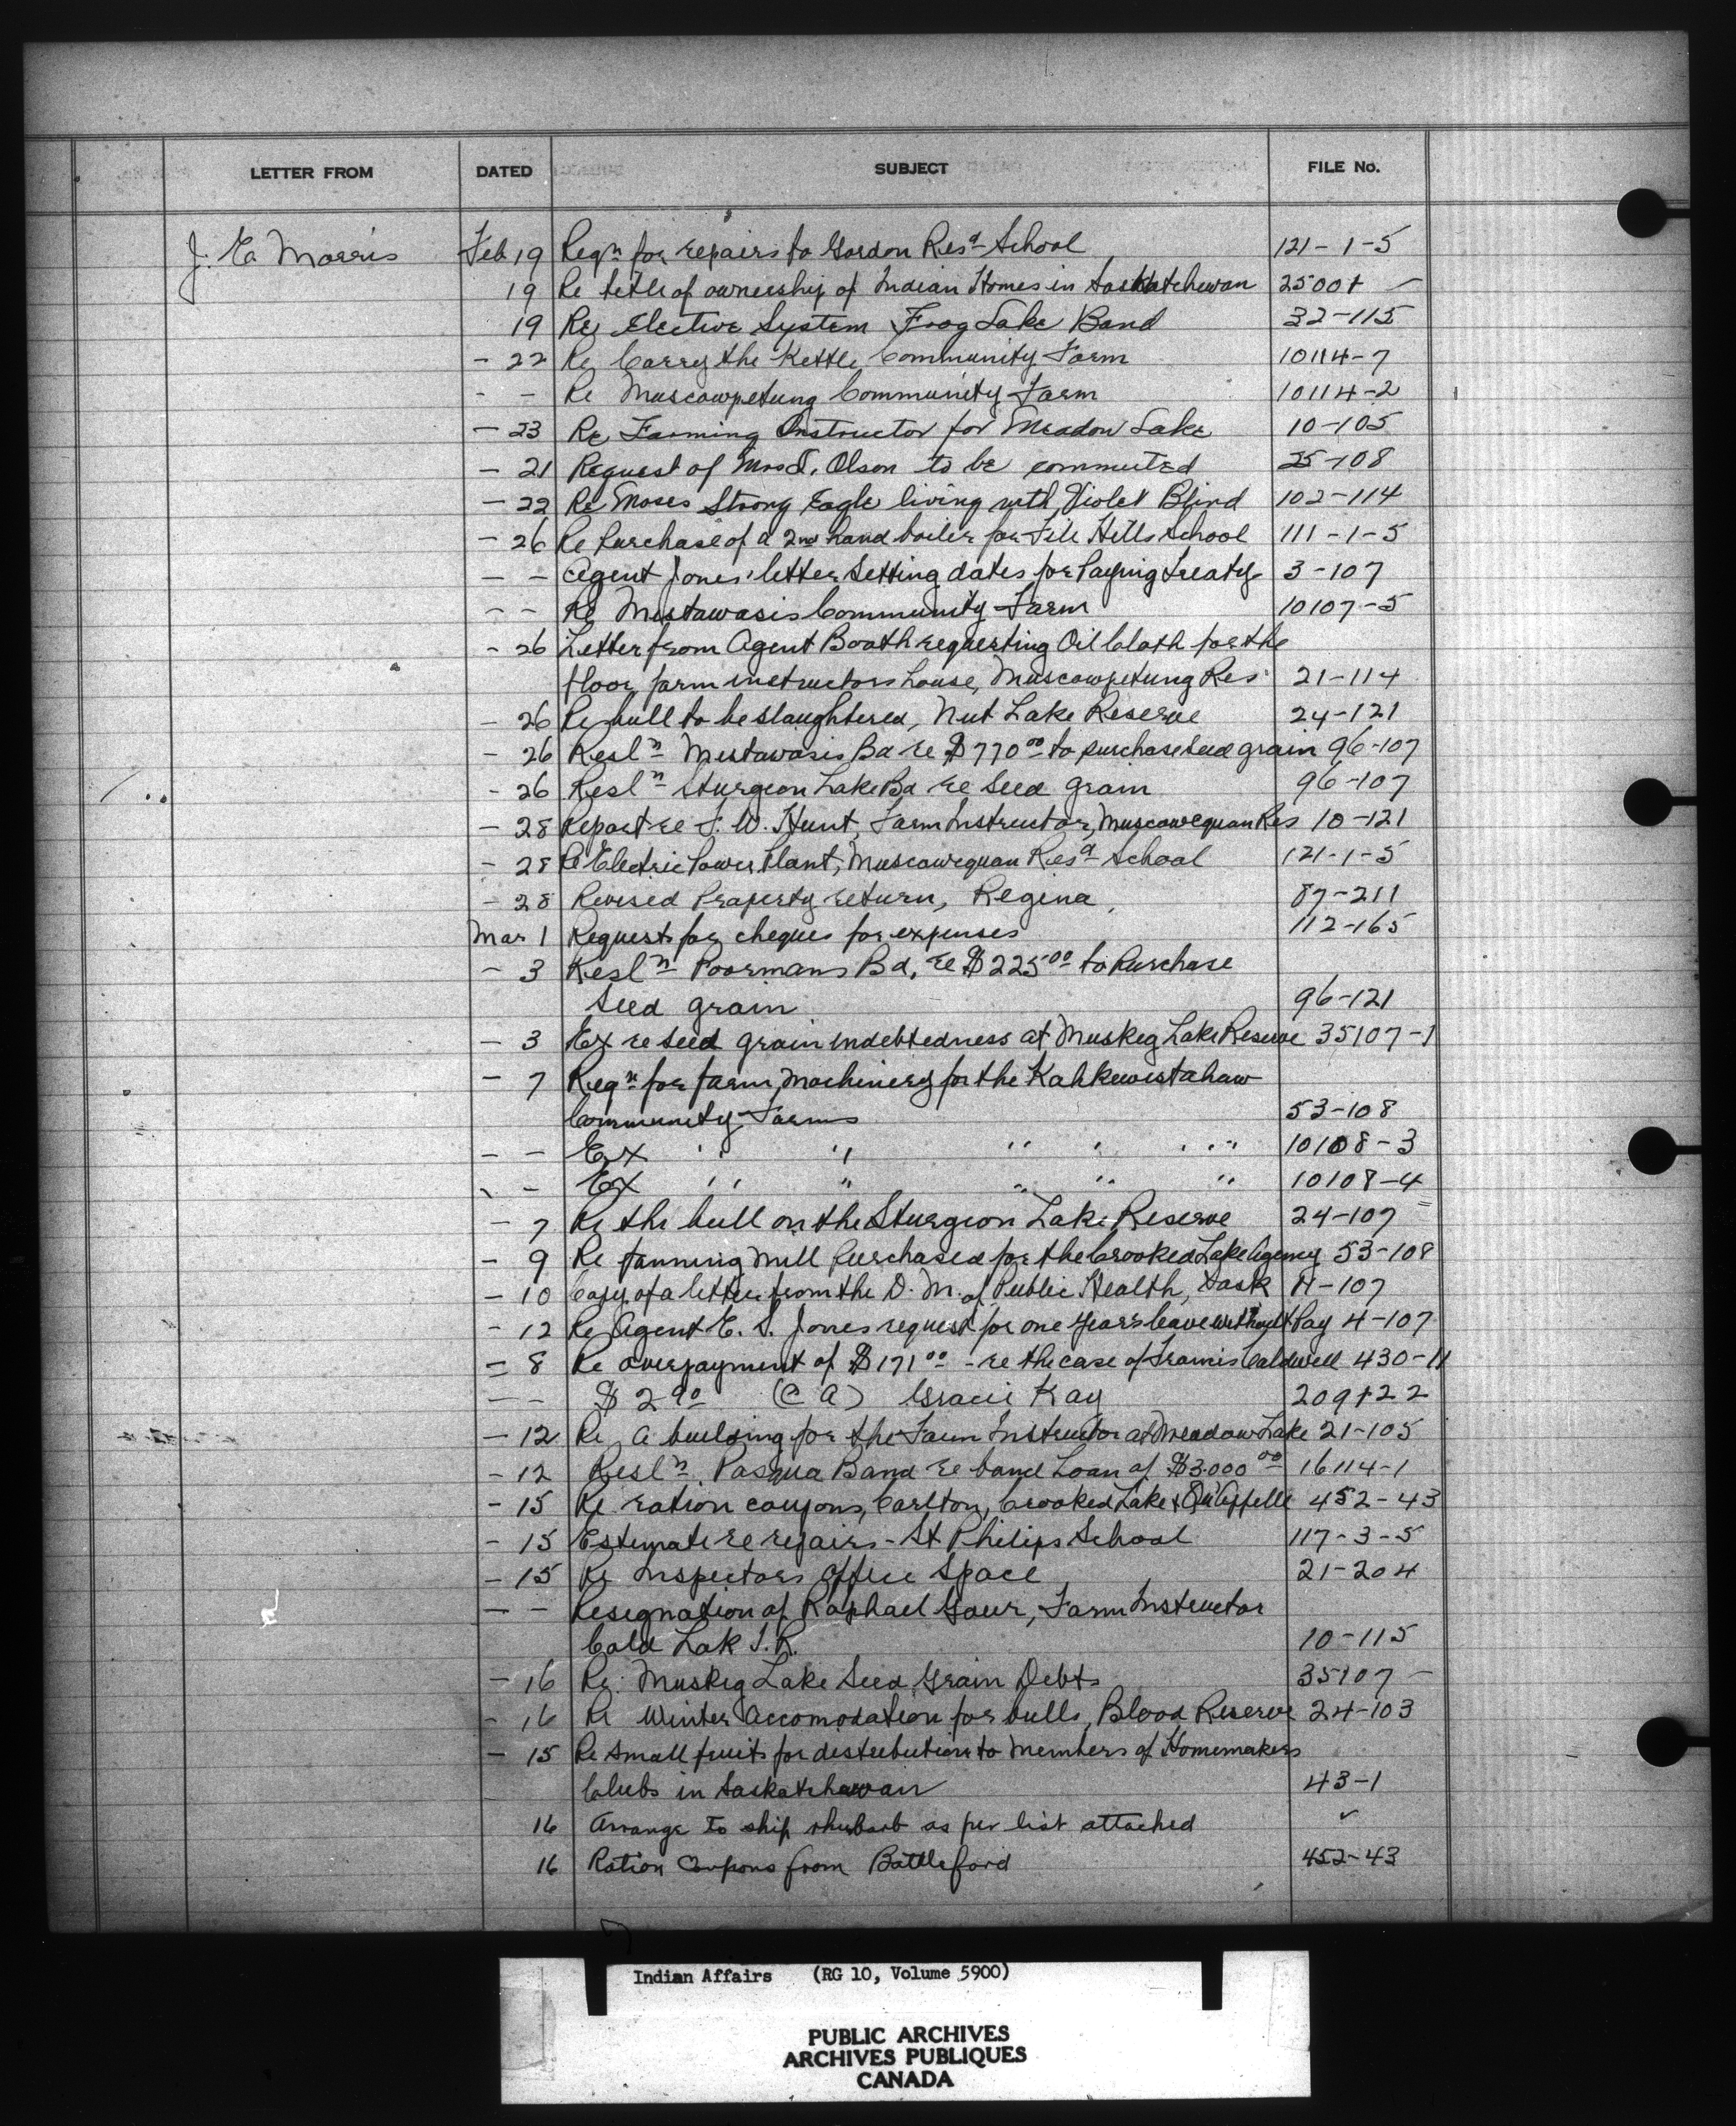 LETTER FROM DATED SUBJECT FILE No.
J. E. Morris Feb 19 Reqn for repairs to Gordon Resd School 121-1-5
19 Re title of ownership of Indian Homes in Saskatchewan 25001 -
19 Re Elective System Frog Lake Band 32-115
- 22 Re Carry the Kettle Community Farm 10114-7
- - Re Muscowpetung Community Farm 10114-2
- 23 Re Farming Instructor for Meadow Lake 10-105
- 21 Request of Mrs Olson to be commuted 25-108
- 22 Re Moses Strong Eagle living with Violet Blind 102-114
- 26 Re Purchase of a 2nd hand boiler for File Hills School 111-1-5
- - Agent Jones' letter setting dates for Paying Treaty 3-107
- - Re Mistawasis Community Farm 10107-5
- 26 Letter from Agent Booth requesting Oil Cloth for the
floor, farm instructors house, Muscowpetung Res 21-114
- 26 Re bull to be slaughtered, Nut Lake Reserve 24-121
- 26 Resln Mistawasis Bd re $770.00 to purchase seed grain 96-107
- 26 Resln Sturgeon Lake Bd re Seed Grain 96-107
- 28 Report re S. W. Hunt, Farm Instructor, Muscowequan Res 10-121
- 28 Re Electric Power Plant, Muscowequan Resd School 121-1-5
- 28 Revised Property return, Regina 87-211
Mar 1 Request for cheques for expenses 112-165
- 3 Resln Poormans Bd. re $225.00 to Purchase
Seed grain 96-121
- 3 Ex re seed grain indebtedness at Muskeg Lake Reserve 35107-1
- 7 Reqn for farm machinery for the Kahkewistahaw
Community Farms 53-108
- - Ex " " " " " 10108-3
- - Ex " " " " " 10108-4
- 7 Re the bull on the Sturgeon Lake Reserve 24-107
- 9 Re fanning mill Purchased for the Crooked Lake Agency 53-108
- 10 Copy of a letter from the D. M. of Public Health, Sask 11-107
- 12 Re Agent E. S. Jones request for one years leave without Pay 4-107
- 8 Re overpayment of $171.00 - re the case of Francis Caldwell 430-11
- - $2.90 (C A) Gracie Kay 209122
- 12 Re A building for the Farm Instructor at Meadow Lake 21-105
- 12 Resln. Pasqua Band re band Loan of $3.000.00 16114-1
- 15 Re ration coupons, Carlton, Crooked Lake & Qu'Appelle 452-43
- 15 Estimate re repairs - St Philips School 117-3-5
- 15 Re Inspectors Office Space 21-204
- - Resignation of Raphael Farm Instructor
Cold Lak I.R. 10-115
- 16 Re: Muskeg Lake Seed Grain Debts 35107 -
- 16 Re Winter Accomodation for bulls, Blood Reserve 24-103
- 15 Re small fruits for distribution to Members of Homemakers
Clubs in Saskatchewan 43-1
16 Arrange to ship rhubarb as per list attached ✓
16 Ration Coupons from Battleford 452-43
Indian Affairs (RG 10, Volume 5900)
PUBLIC ARCHIVES
ARCHIVES PUBLIQUES
CANADA